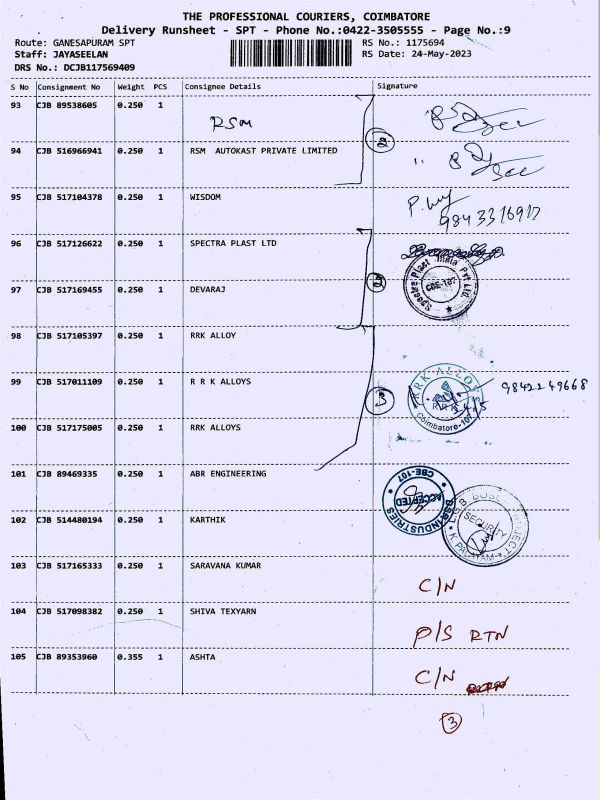 THE PROFESSIONAL COURIERS, COIMBATORE
Delivery Runsheet - SPT - Phone No.:0422-3505555 - Page No.:9
Route: GANESAPURAM SPT RS No.: 1175694
Staff: JAYASEELAN RS Date: 24-May-2023
DRS No.: DCJB117569409
S No Consignment No Weight PCS Consignee Details Signature
93 CJB 89538605 0.250 1
RSM
2
94 CJB 516966941 0.250 1 RSM AUTOKAST PRIVATE LIMITED
95 CJB 517104378 0.250 1 WISDOM
9843316917
96 CJB 517126622 0.250 1 SPECTRA PLAST LTD
Spectra Plast India Pvt Ltd
CBE-107
2
97 CJB 517169455 0.250 1 DEVARAJ
98 CJB 517105397 0.250 1 RRK ALLOY
99 CJB 517011109 0.250 1 R R K ALLOYS
3
RRK ALLOYS
Coimbatore-107
9842249668
100 CJB 517175005 0.250 1 RRK ALLOYS
101 CJB 89469335 0.250 1 ABR ENGINEERING
CBE-107
ACCEPTED
INDUSTRIES
102 CJB 514480194 0.250 1 KARTHIK
SECURITY
103 CJB 517165333 0.250 1 SARAVANA KUMAR
C/N
104 CJB 517098382 0.250 1 SHIVA TEXYARN
P/S RTN
105 CJB 89353960 0.355 1 ASHTA
C/N
3